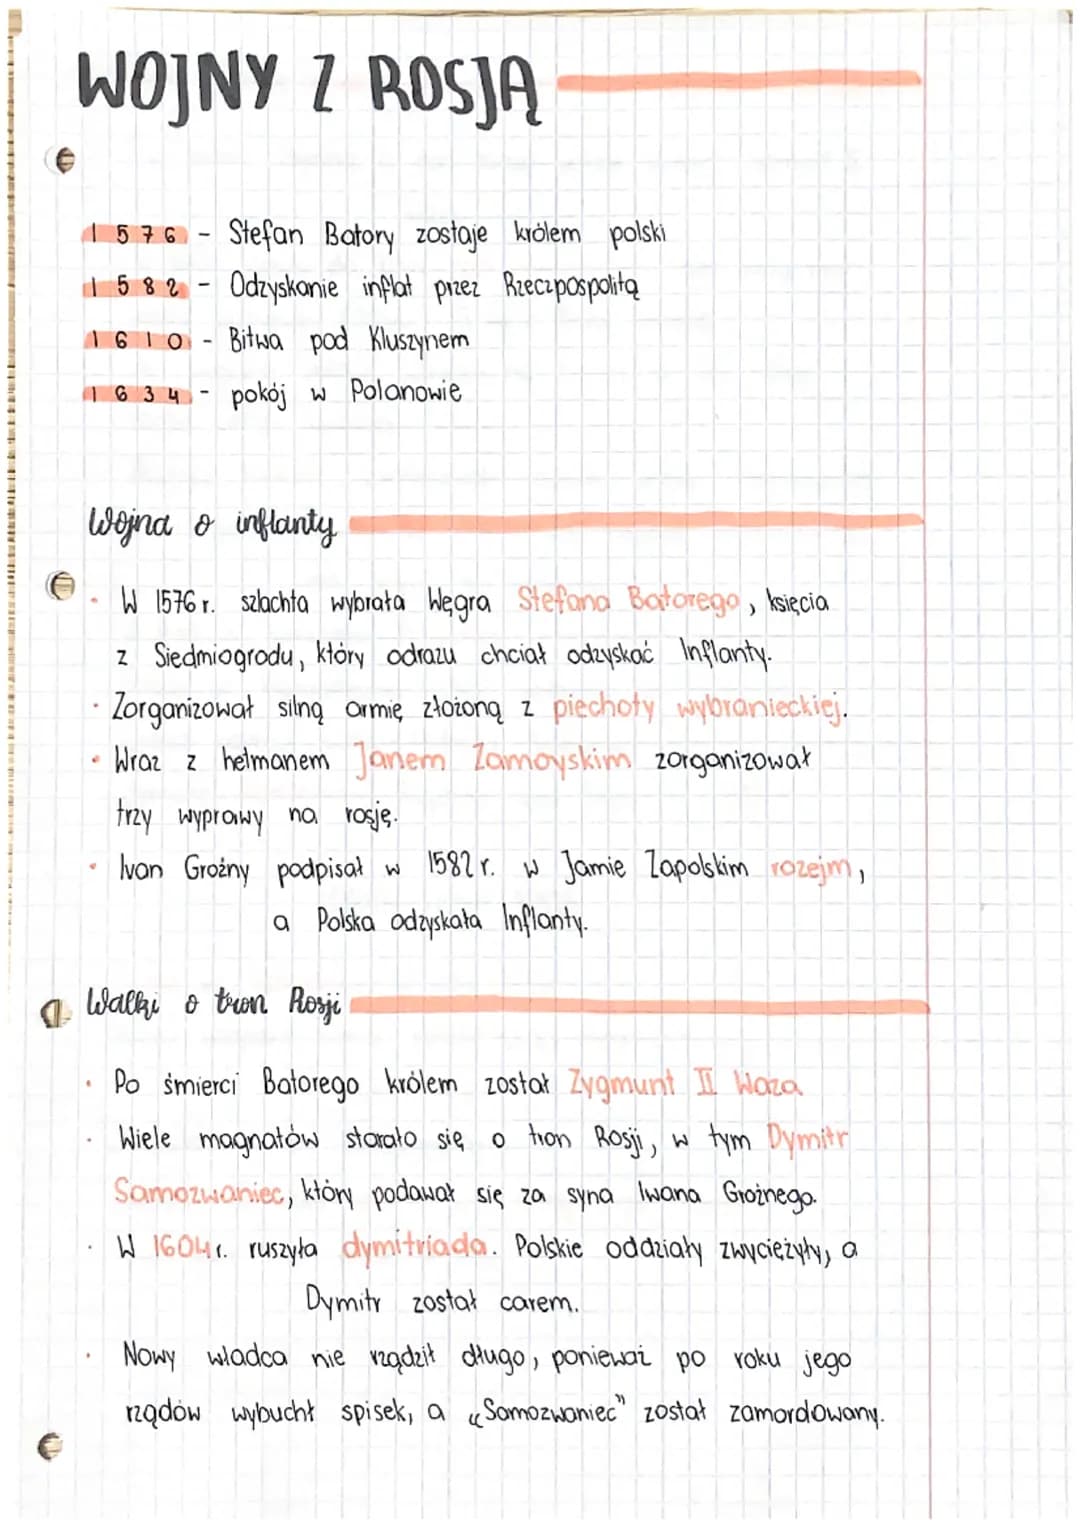 WOJNY Z ROSJĄ
1576 - Stefan Batory zostaje królem polski
1582 - Odzyskanie inflat przez Rzeczpospolitą
1610 - Bitwa pod Kluszynem
1634 - pokój w Polanowie
Wojna o inflanty
· W 1576 r. szlachta wybrała Węgra Stefana Batorego, księcia
z Siedmiogrodu, który odrazu chciał odzyskać Inflanty.
· Zorganizował silną armię złożoną z piechoty wybranieckiej.
· Wraz z hetmanem Janem Zamoyskim zorganizował
trzy wyprawy na rosję.
· Ivan Groźny podpisał w 1582 r. w Jamie Zapolskim rozejm,
a Polska odzyskała Inflanty.
Walki o tron Rosji
· Po śmierci Batorego królem został Zygmunt II Waza
· Wiele magnatów starało się o tron Rosji, w tym Dymitr
Samozwaniec, który podawał się za syna Iwana Groźnego.
· W 1604 r. ruszyła dymitriada. Polskie oddziały zwyciężyły, a
Dymitr został carem.
· Nowy władca nie rządził długo, ponieważ po roku jego
rządów wybuchł spisek, a „Samozwaniec" został zamordowany.